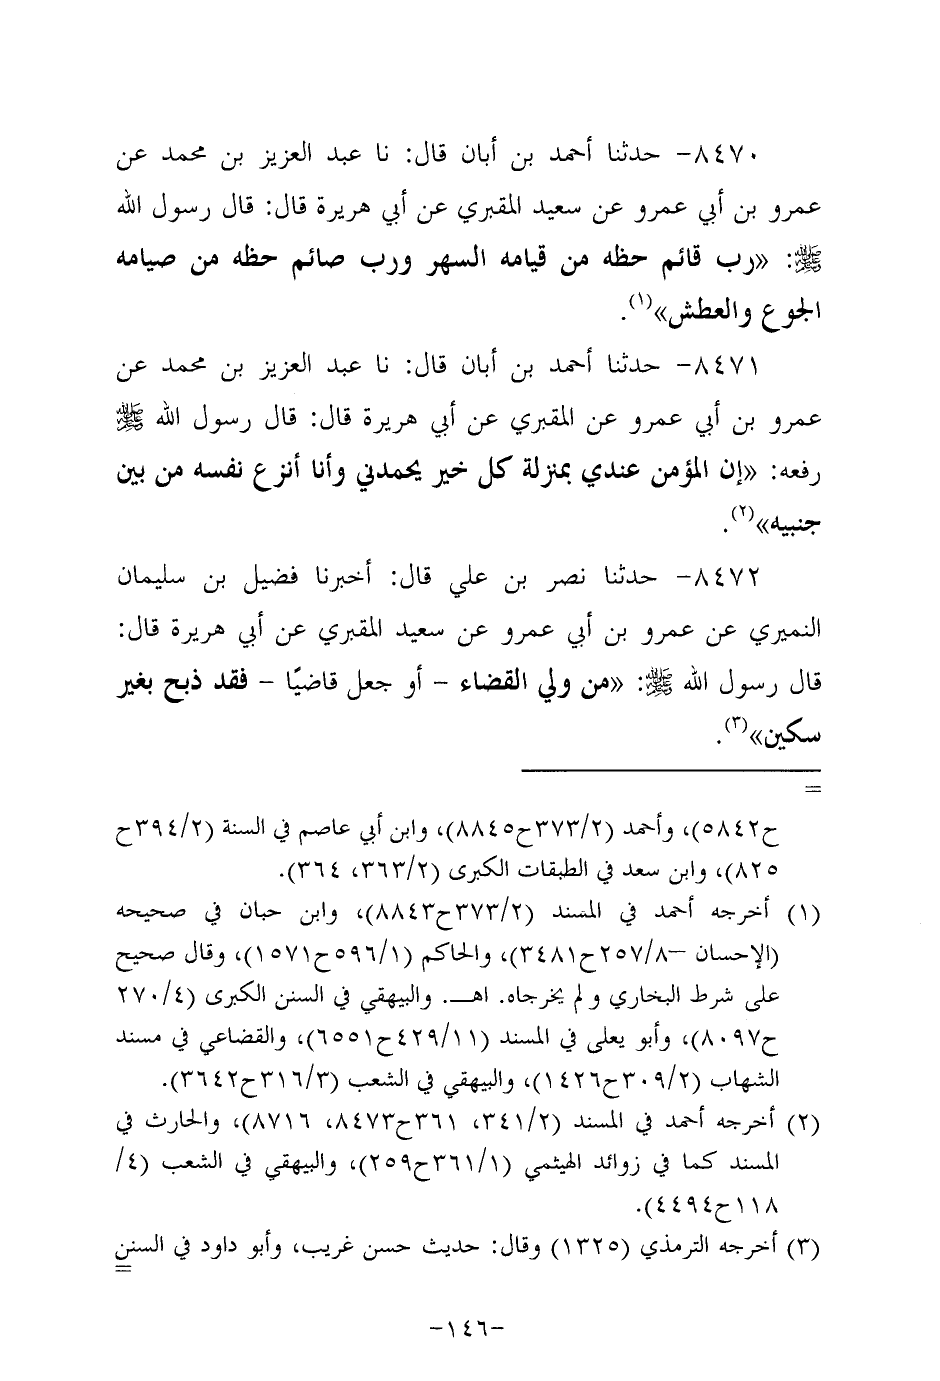 ٨٤٧٠- حدثنا أحمد بن أبان قال: نا عبد العزيز بن محمد عن
عمرو بن أبي عمرو عن سعيد المقبري عن أبي هريرة قال: قال رسول الله
ﷺ: «رب قائم حظه من قيامه السهر ورب صائم حظه من صيامه
الجوع والعطش»(١).
٨٤٧١- حدثنا أحمد بن أبان قال: نا عبد العزيز بن محمد عن
عمرو بن أبي عمرو عن المقبري عن أبي هريرة قال: قال رسول الله ﷺ
رفعه: «إن المؤمن عندي بمنزلة كل خير يحمدني وأنا أنزع نفسه من بين
جنبيه»(٢).
٨٤٧٢- حدثنا نصر بن علي قال: أخبرنا فضيل بن سليمان
النميري عن عمرو بن أبي عمرو عن سعيد المقبري عن أبي هريرة قال:
قال رسول الله ﷺ: «من ولي القضاء - أو جعل قاضيًا - فقد ذبح بغير
سكين»(٣).
=
ح٥٨٤٢)، وأحمد (٣٧٣/٢ح٨٨٤٥)، وابن أبي عاصم في السنة (٣٩٤/٢ح
٨٢٥)، وابن سعد في الطبقات الكبرى (٣٦٣/٢، ٣٦٤).
(١) أخرجه أحمد في المسند (٣٧٣/٢ح٨٨٤٣)، وابن حبان في صحيحه
(الإحسان -٢٥٧/٨ح٣٤٨١)، والحاكم (٥٩٦/١ح١٥٧١)، وقال صحيح
على شرط البخاري ولم يخرجاه. اهـ. والبيهقي في السنن الكبرى (٢٧٠/٤
ح٨٠٩٧)، وأبو يعلى في المسند (٤٢٩/١١ح٦٥٥١)، والقضاعي في مسند
الشهاب (٣٠٩/٢ح١٤٢٦)، والبيهقي في الشعب (٣١٦/٣ح٣٦٤٢).
(٢) أخرجه أحمد في المسند (٣٤١/٢، ٣٦١ح٨٤٧٣، ٨٧١٦)، والحارث في
المسند كما في زوائد الهيثمي (٣٦١/١ح٢٥٩)، والبيهقي في الشعب (٤/
١١٨ح٤٤٩٤).
(٣) أخرجه الترمذي (١٣٢٥) وقال: حديث حسن غريب، وأبو داود في السنن
=
-١٤٦-